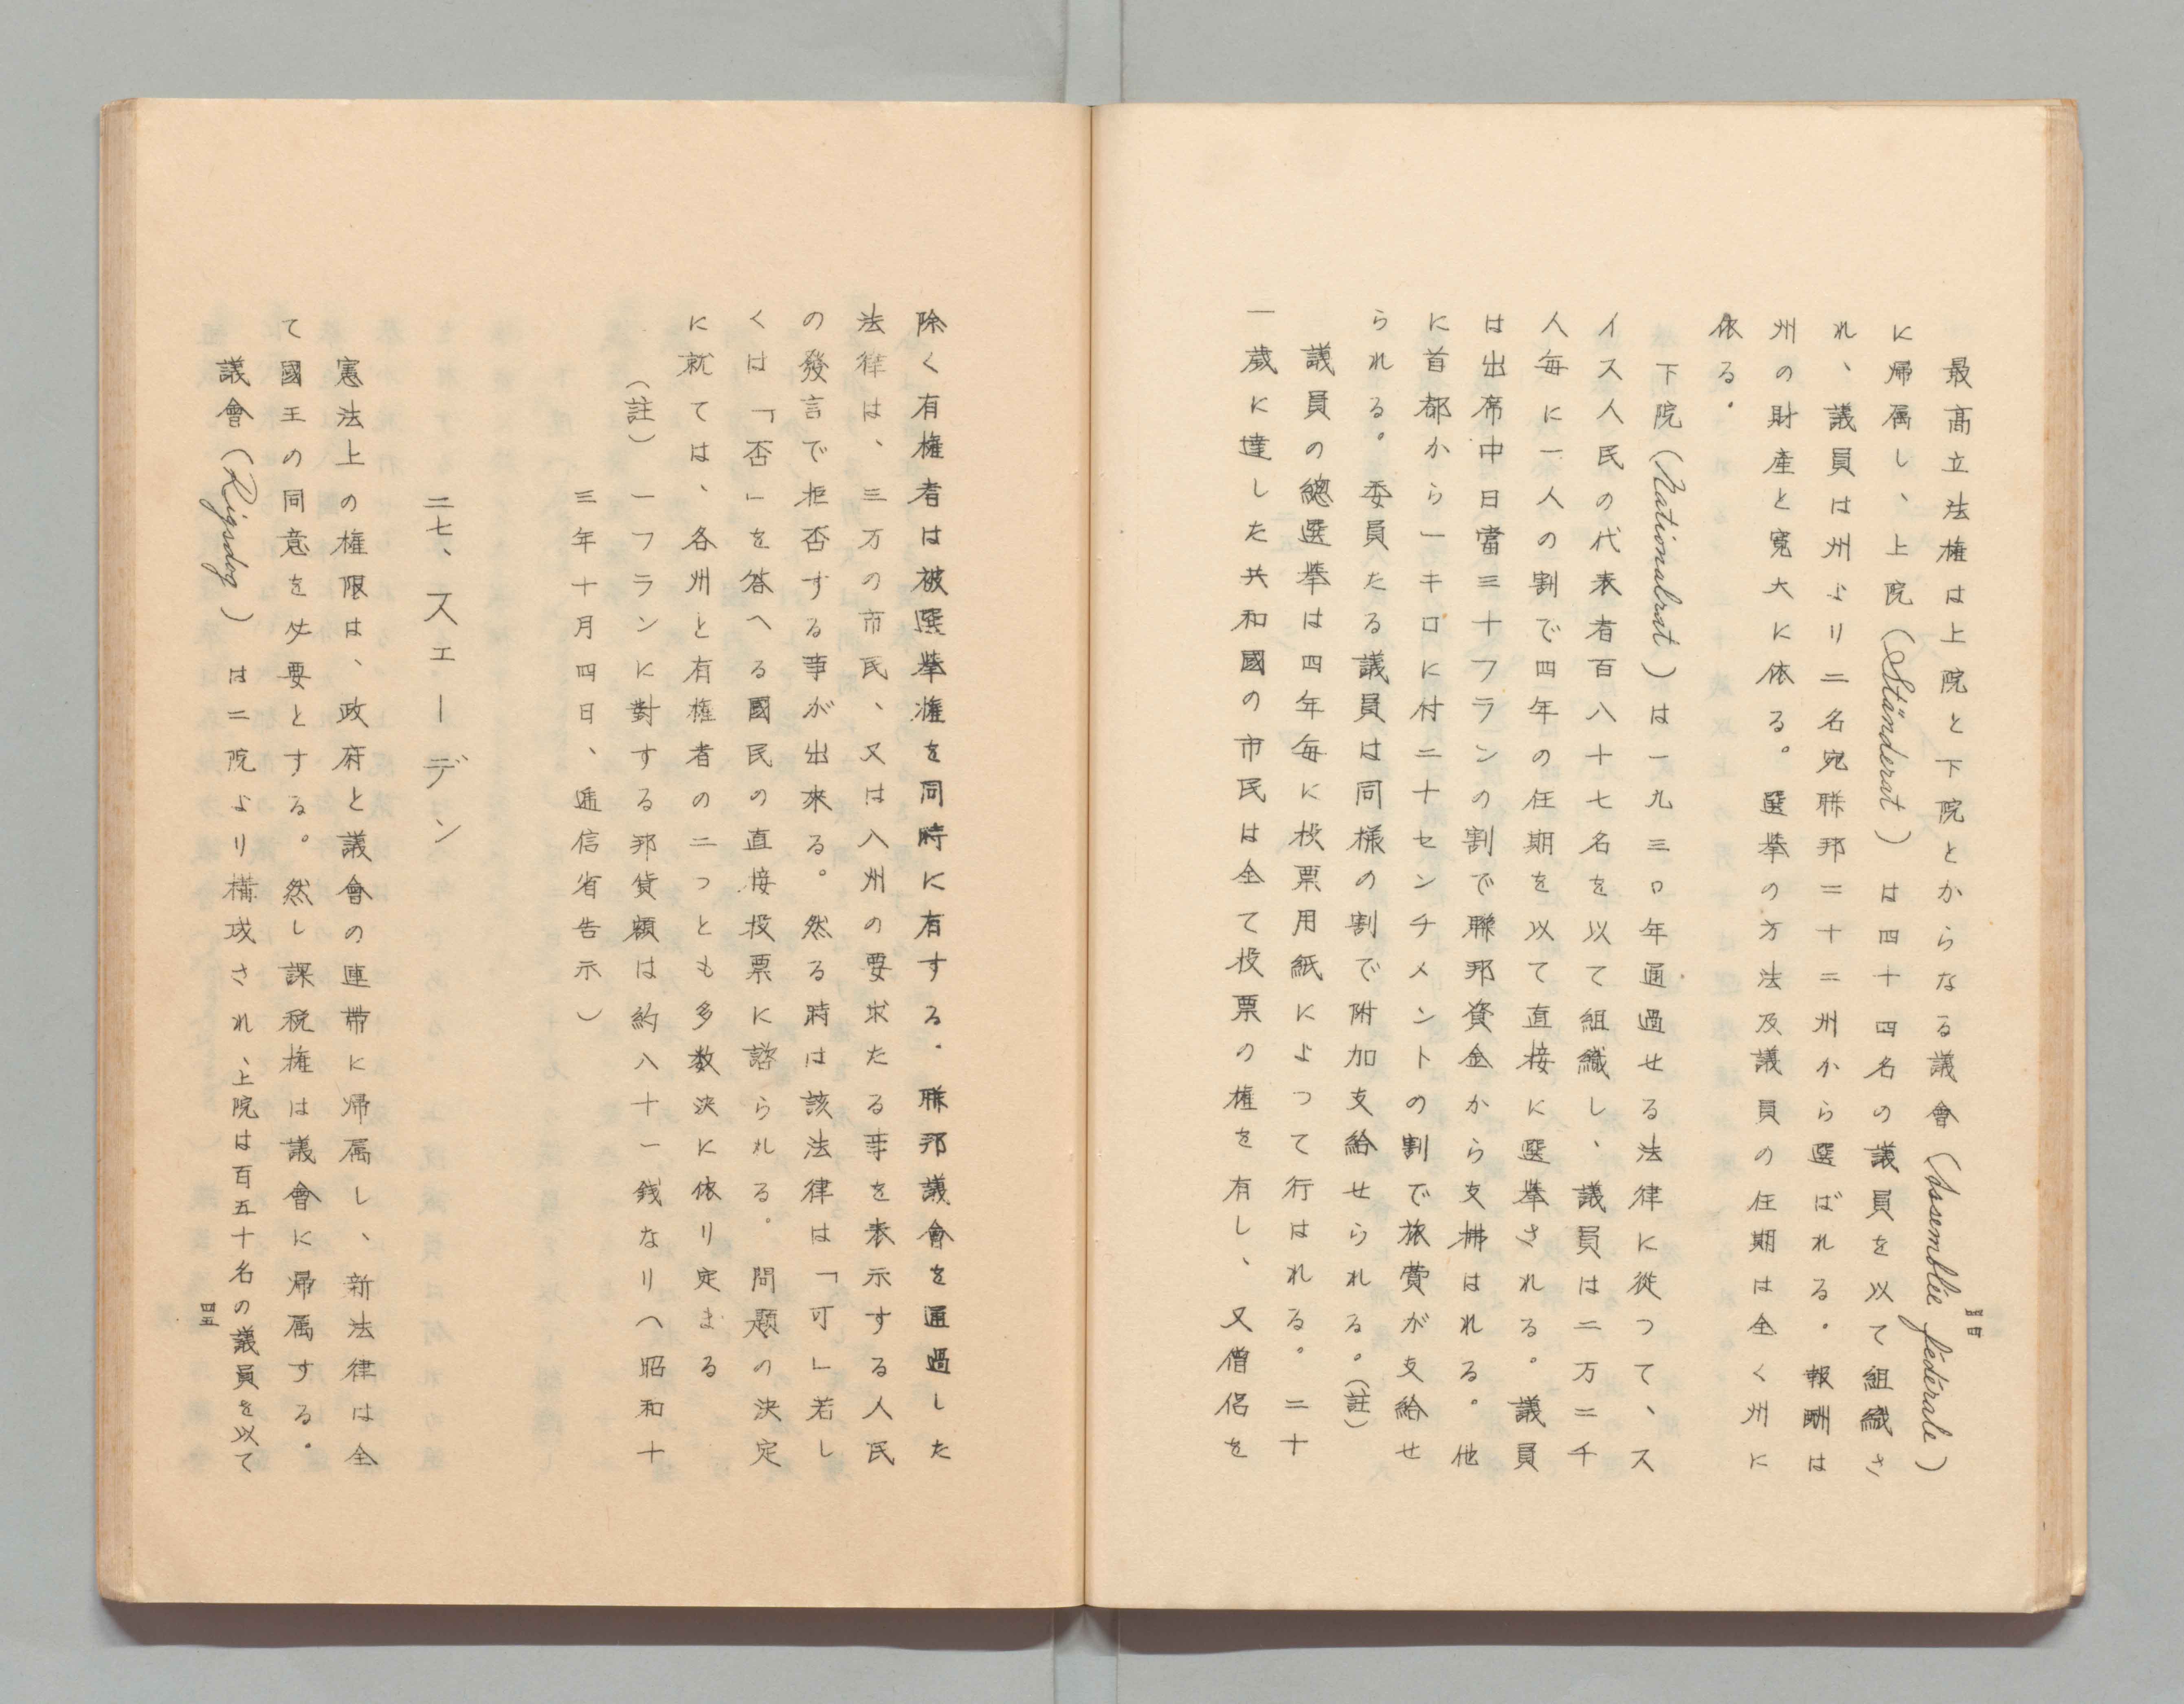 最高立法権は上院と下院とからなる議會（Assemblée fédérale）
に帰属し、上院（Ständerat）は四十四名の議員を以て組織さ
れ、議員は州より二名宛聯邦二十二州から選ばれる。報酬は
州の財産と寛大に依る。選挙の方法及議員の任期は全く州に
依る。
下院（Nationalrat）は一九三〇年通過せる法律に従つて、ス
イス人民の代表者百八十七名を以て組織し、議員は二万二千
人毎に一人の割で四年の任期を以て直接に選挙される。議員
は出席中日當三十フランの割で聯邦資金から支拂はれる。他
に首都から一キロに付二十センチメントの割で旅費が支給せ
られる。委員たる議員は同様の割で附加支給せられる。（註）
議員の總選挙は四年毎に投票用紙によつて行はれる。二十
一歳に達した共和國の市民は全て投票の権を有し、又僧侶を
四四
除く有権者は被選挙権を同時に有する。聯邦議會を通過した
法律は、三万の市民、又は八州の要求たる事を表示する人民
の發言で拒否する事が出来る。然る時は該法律は「可」若し
くは「否」を答へる國民の直接投票に諮られる。問題の決定
に就ては、各州と有権者の二つとも多数決に依り定まる
（註）一フランに對する邦貨額は約八十一銭なり（昭和十
三年十月四日、逓信省告示）
二七、スエーデン
憲法上の権限は、政府と議會の連帯に帰属し、新法律は全
て國王の同意を必要とする。然し課税権は議會に帰属する。
議會（Rigsdog）は二院より構成され、上院は百五十名の議員を以て
四五